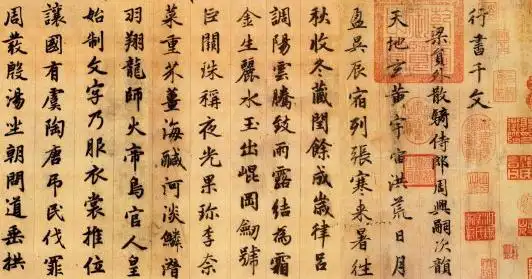 行書千文
梁員外散騎侍郎周興嗣次韻
天地玄黃宇宙洪荒日月
盈昃辰宿列張寒来暑往
秋收冬藏閏餘成歲律呂
調陽雲騰致雨露結為霜
金生麗水玉出崐岡劒號
巨闕珠稱夜光果珎李柰
菜重芥薑海醎河淡鱗潛
羽翔龍師火帝鳥官人皇
始制文字乃服衣裳推位
讓國有虞陶唐吊民伐罪
周發殷湯坐朝問道垂拱